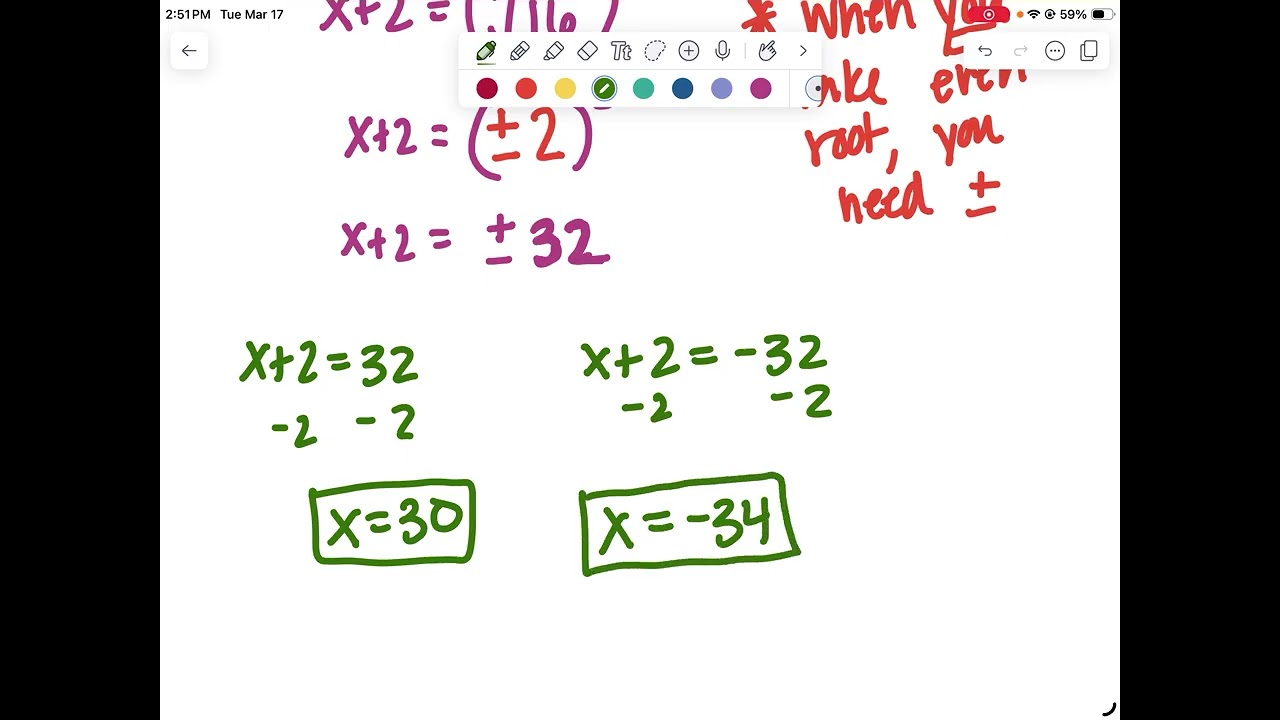 2:51PM Tue Mar 17
59%
x+2 = (
* when you
Tt
take even
x+2 = (± 2)
root, you
need ±
x+2 = ± 32
x+2=32
x+2=-32
-2 -2
-2 -2
x=30
x=-34